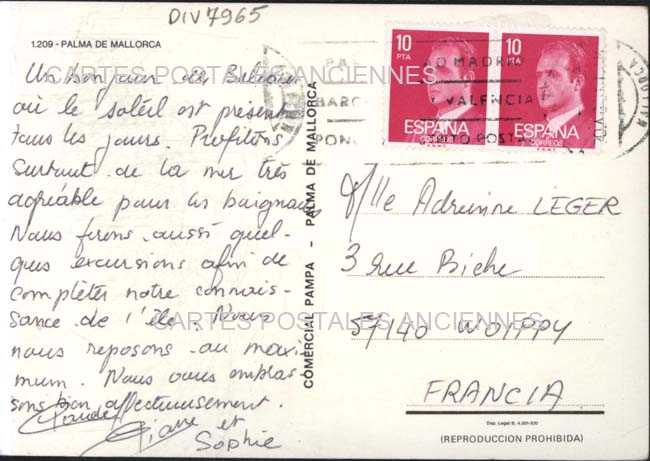 DIV7965
1.209 - PALMA DE MALLORCA
Un bonjour des Baléares
où le soleil est présent
tous les jours. Profitons
surtout de la mer très
agréable pour les baignades
Nous ferons aussi quel-
ques excursions afin de
compléter notre connais-
sance de l'île. Nous
nous reposons au maxi
mum. Nous vous embras-
sons bien affectueusement.
Claude
et
Sophie
COMERCIAL PAMPA - PALMA DE MALLORCA
10
PTA
ESPAÑA
CORREOS
10
PTA
ESPAÑA
CORREOS
MADRID
VALENCIA
POSTAL
Mlle Adrienne LEGER
3 rue Biche
57140 WOIPPY
FRANCIA
Dep. Legal B. 4.301-XXI
(REPRODUCCION PROHIBIDA)
CARTES POSTALES ANCIENNES
CARTES POSTALES ANCIENNES